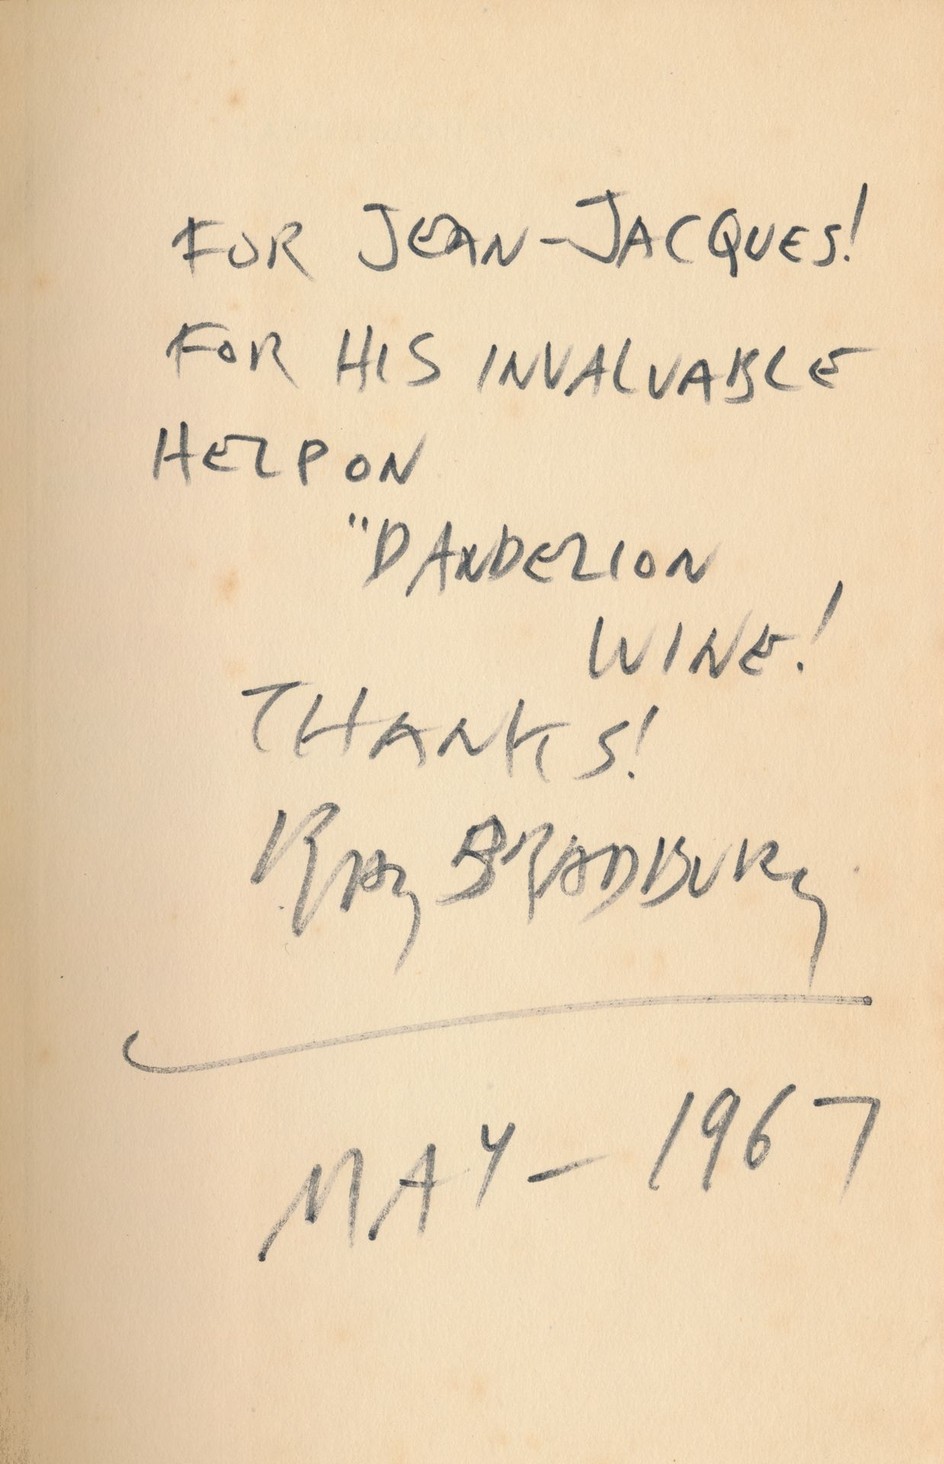 FOR JEAN-JACQUES!
FOR HIS INVALUABLE
HELP ON
"DANDELION
WINE!
THANKS!
RAY BRADBURY
MAY - 1967